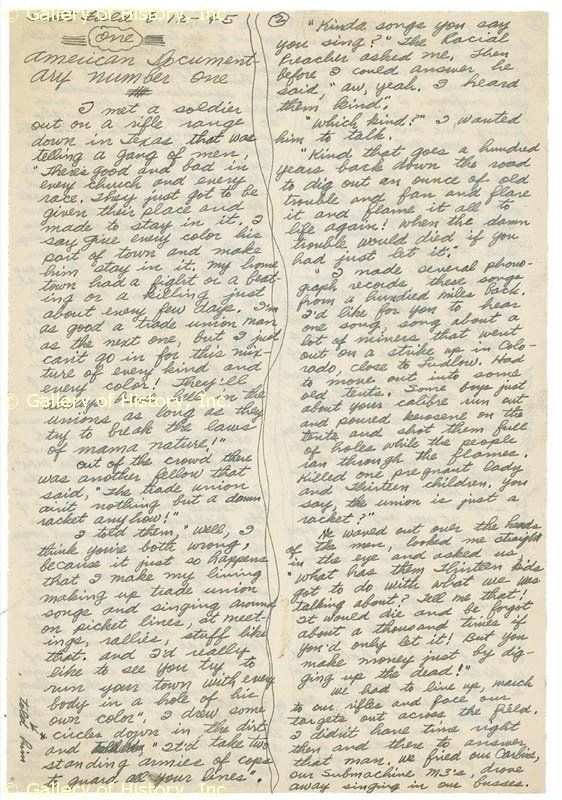 one
American Document-
ary Number One
I met a soldier
out on a rifle range
down in Texas, that was
telling a gang of men,
"There's good and bad in
every church and every
race. They just got to be
given their place and
made to stay in it. I
say give every color his
part of town and make
him stay in it. My home
town had a fight or a beat-
ing or a killing just
about every few days. I'm
as good a trade union man
as the next one, but I just
can't go in for this mix-
ture of every kind and
every color! They'll
in the
unions as long as they
try to break the laws
of mama nature!"
Out of the crowd there
was another fellow that
said, "The trade union
ain't nothing but a damn
racket anyhow!"
I told them, "Well, I
think you're both wrong,
because it just so happens
that I make my living
making up trade union
songs and singing around
on picket lines, at meet-
ings, rallies, stuff like
that. And I'd really
like to see you try to
run your town with every
body in a hole of his
own color". I drew some
circles down in the dirt
and "It'd take two
standing armies of cops
to guard all your lines".
I
told him
2
"Kinda songs you say
you sing?" The Racial
Preacher asked me. Then
before I could answer, he
said, "aw, yeah. I heard
them kind".
"Which kind?" I wanted
him to talk.
"Kind that goes a hundred
years back down the road
to dig out an ounce of old
trouble and fan and flare
it and flame it all to
life again! When the damn
trouble would died if you
had just let it."
"I made several phono-
graph records these songs
from a hundred miles back.
I'd like for you to hear
one song, song about a
lot of miners that went
out on a strike up in Colo-
rado, close to Ludlow. Had
to move out into some
old tents. Some boys just
about your calibre run out
and poured kerosene on the
tents and shot them full
of holes while the people
ran through the flames.
Killed one pregnant lady
and thirteen children. You
say, the union is just a
racket?"
He waved out over the heads
of the men, looked me straight
in the eye and asked us,
"What has them thirteen kids
got to do with what we was
talking about? Tell me that!
It would die and be forgot
about a thousand times if
you'd only let it! But you
make money just by dig-
ging up the dead!"
We had to line up, march
to our rifles and face our
targets out across the field.
I didn't have time right
then and there to answer
that man. We fired our Carbines,
our Submachine M3's, drove
away singing in our busses.
© Gallery of History, Inc.
© Gallery of History, Inc.
© Gallery of History, Inc.